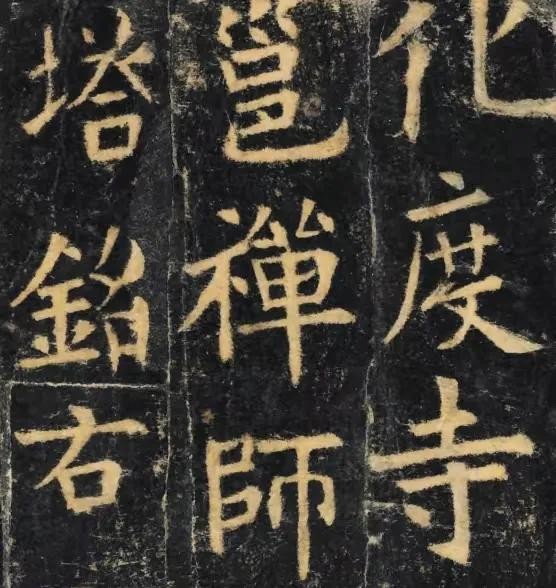 化度寺
邕禪師
塔銘右